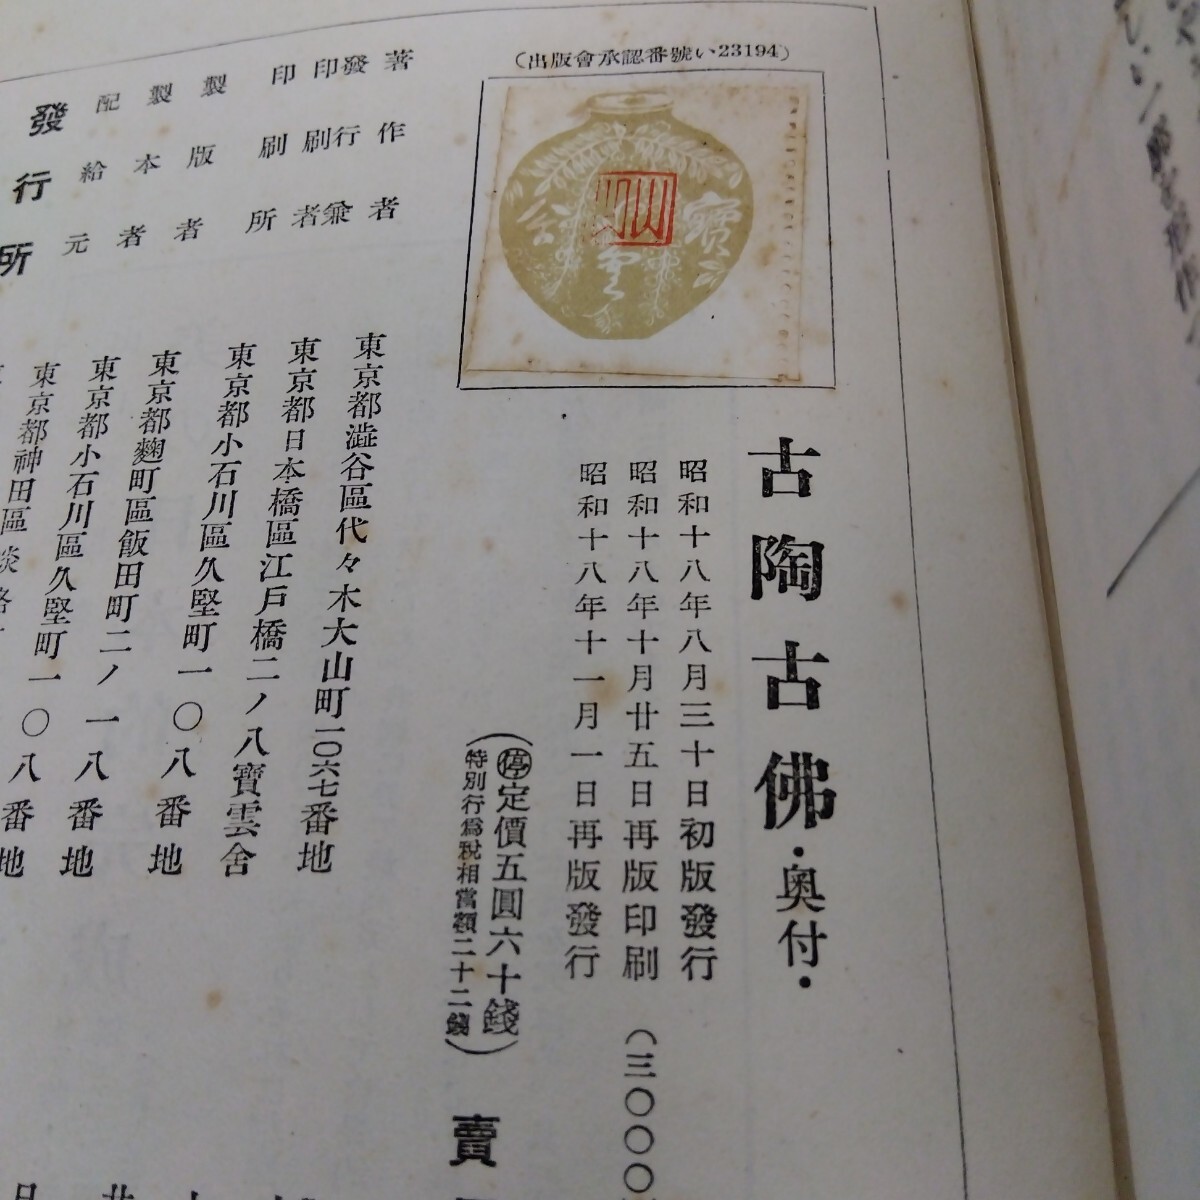 (出版會承認番號い23194)
寶
雲
舍
古陶古佛・奥付・
昭和十八年八月三十日初版發行
昭和十八年十月廿五日再版印刷 (三〇〇〇
昭和十八年十一月一日再版發行
(停定價五圓六十錢
特別行爲稅相當額二十二錢)
賣
著作者 東京都澁谷區代々木大山町一〇六七番地
發行兼
印刷者 東京都日本橋區江戶橋二ノ八寶雲舍
印刷所 東京都小石川區久堅町一〇八番地
製版者 東京都麴町區飯田町二ノ一八番地
製本者 東京都小石川區久堅町一〇八番地
配給元 東京都神田區淡路
發行所